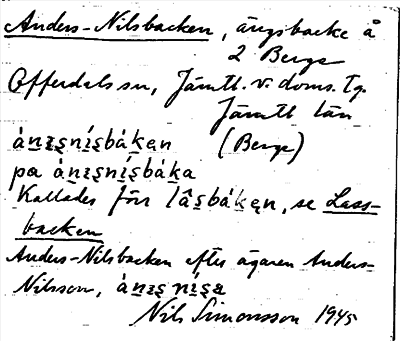 Anders-Nilsbacken, ängsbacke å
2 Berge
Offerdals sn, Jämtl. v. doms. tg.
Jämtl län
ànᵻs̱nís̱bákₑn (Berge)
pa ànᵻs̱nís̱báka
Kallades förr lâs̱bákₑn, se Lass-
backen
Anders-Nilsbacken efter ägaren Anders-
Nilsson, ànᵻs̱ nís̱a
Nils Simonsson 1945